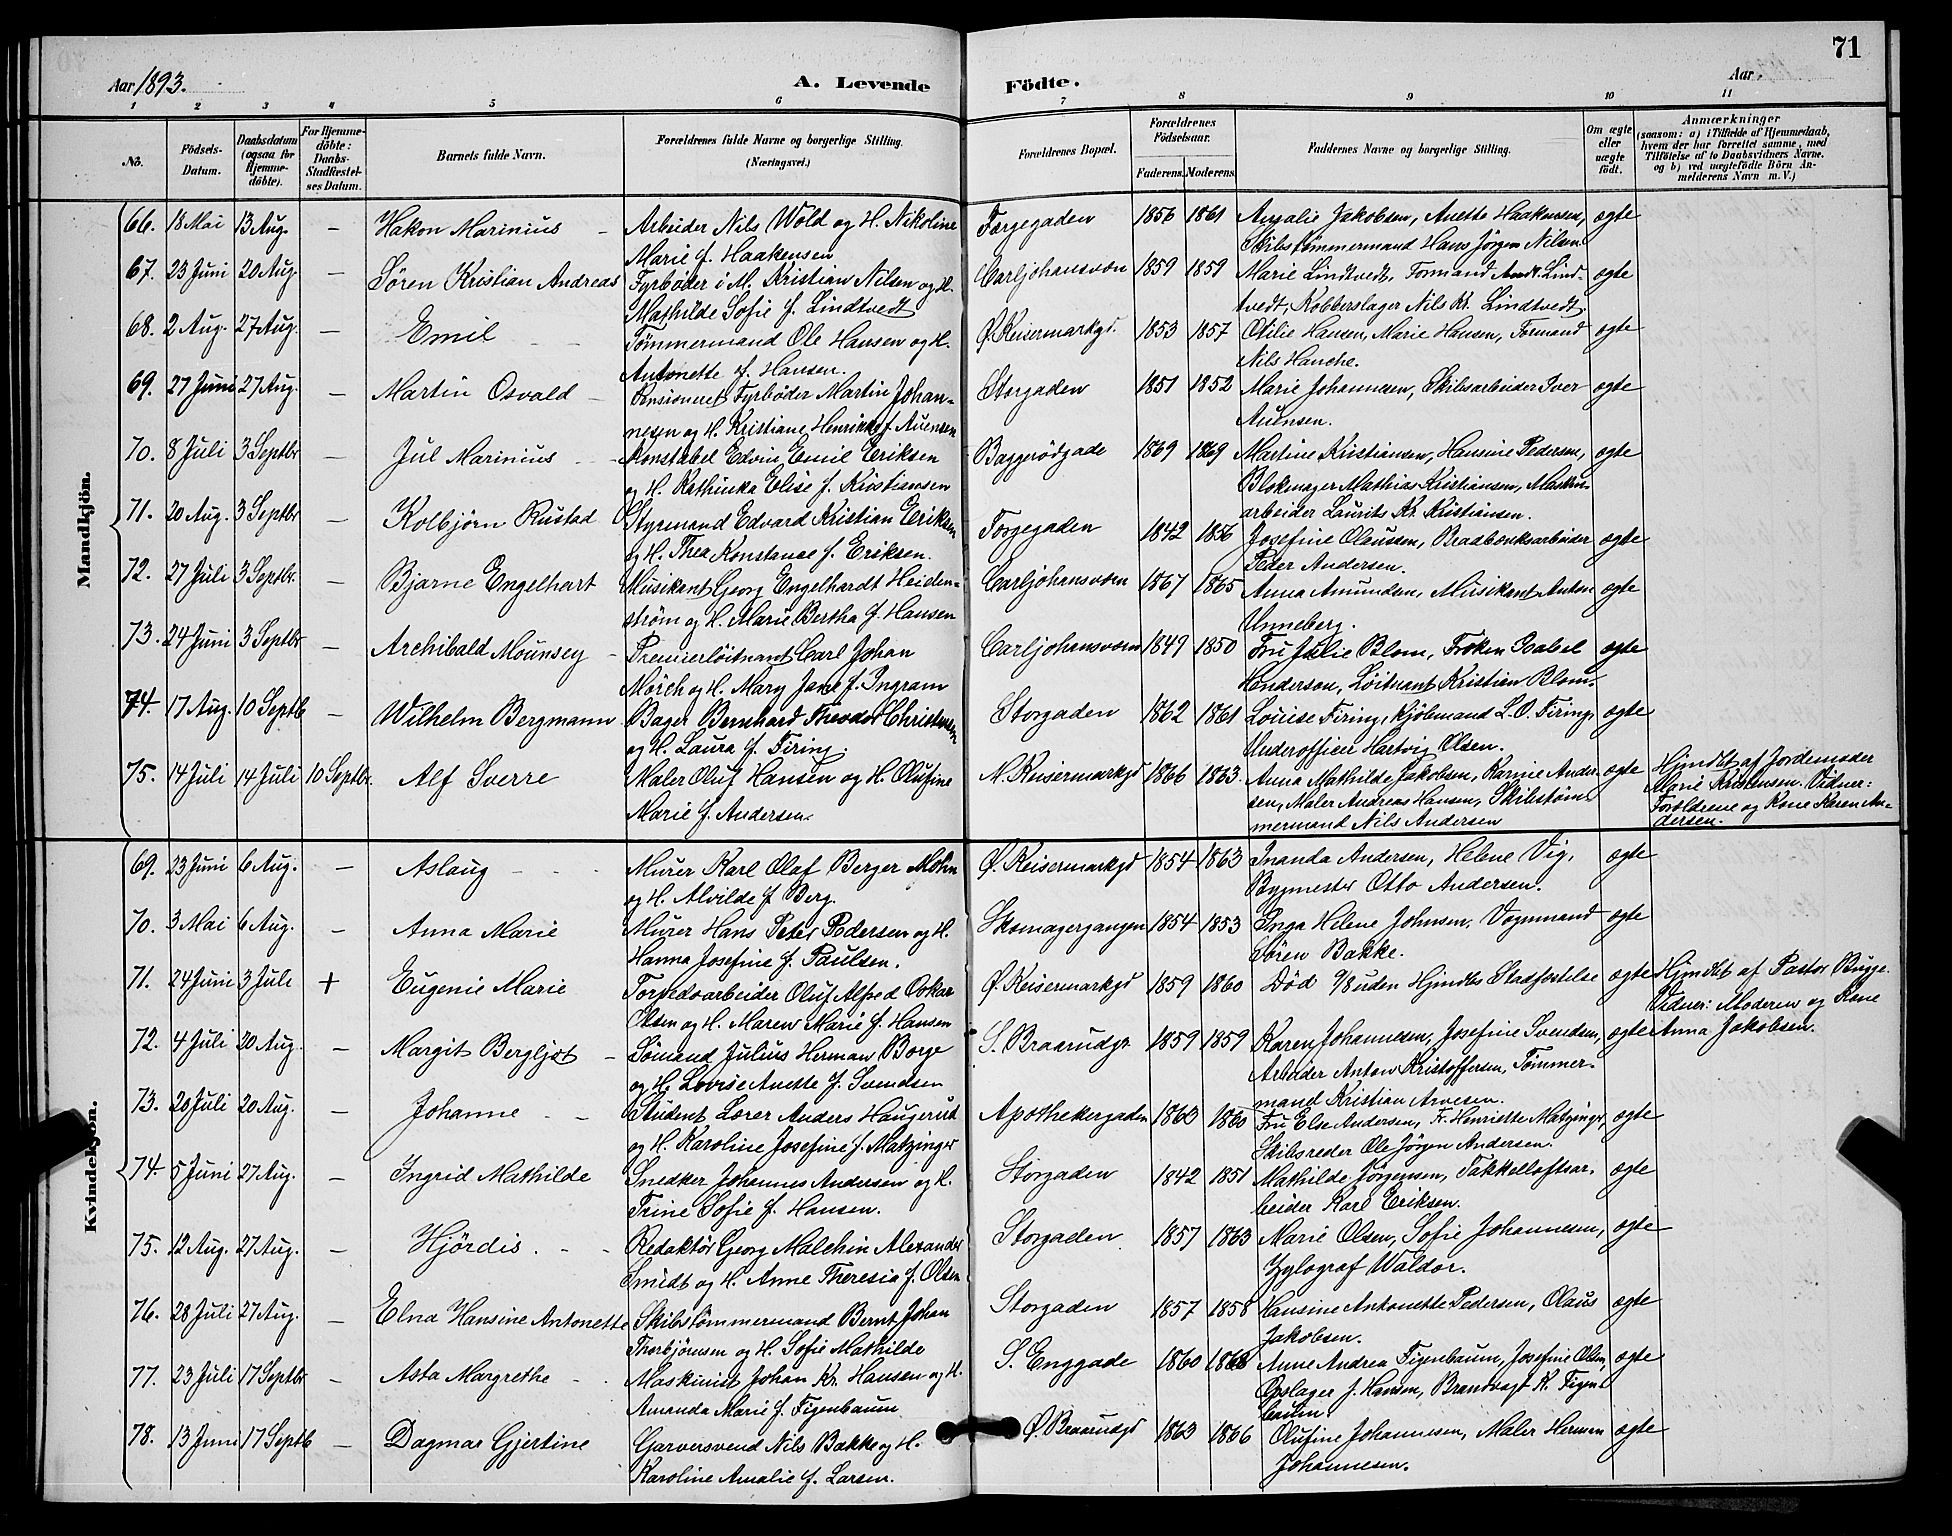 71
Aar 1893.
A. Levende Födte.
Aar
1 2 3 4 5 6 7 8 9 10 11
No. Födsels-Datum. Daabsdatum (ogsaa for Hjemme-döbte). For Hjemme-döbte: Daabs-Stadfæstel-ses Datum. Barnets fulde Navn. Forældrenes fulde Navne og borgerlige Stilling. (Næringsvei.) Forældrenes Bopæl. Forældrenes Födselsaar. Faderens. Moderens. Faddernes Navne og borgerlige Stilling. Om ægte eller uægte födt. Anmærkninger (saasom: a) i Tilfælde af Hjemmedaab, hvem der har forrettet samme, med Tilföielse af to Daabsvidners Navne. og b) ved uægtefödte Börn An-melderens Navn m. V.)
Mandkjön.
66. 18 Mai 13 Aug. — Hakon Marinius — Arbeider Nils Wold og H. Nikoline Færgegaden 1856 1861 Amalie Jakobsen, Anette Haakensen, ægte
Marie f. Haakensen Skibstømmermand Hans Jörgen Nilsen
67. 23 Juni 20 Aug. — Søren Kristian Andreas Fyrbøder i M. Kristian Nilsen og H. Carljohansværn 1859 1859 Marie Lindtvedt, Formand Andr. Lind- ægte
Mathilde Sofie f. Lindtvedt tvedt, Kobberslager Nils Kr. Lindtvedt.
68. 2 Aug. 27 Aug. — Emil — — Tømmermand Ole Hansen og H. Ø. Keisermarkgd. 1853 1857 Otilie Hansen, Marie Hansen, Formand ægte
Antonette f. Hansen. Nils Hanche.
69. 27 Juni 27 Aug. — Martin Osvald — Pensioneret Fyrbøder Martin Johan- Storgaden 1851 1852 Marie Johannesen, Skibsarbeider Iver ægte
nesen og H. Kristiane Henrikke f. Auensen Auensen.
70. 8 Juli 3 Septbr — Jul Marinius — Konstabel Edvin Emil Eriksen Baggerödgade 1869 1869 Martine Kristiansen, Hansine Pedersen, ægte
og H. Kathinka Elise f. Kristiansen Blokmager Mathias Kristiansen, Maskin-
71. 20 Aug. 3 Septbr — Kolbjörn Rustad Styrmand Edvard Kristian Eriksen Færgegaden 1842 1856 arbeider Laurits Kr. Kristiansen.
og H. Thea Konstance f. Eriksen. Josefine Olaussen, Bradbænksarbeider ægte
Peder Andersen.
72. 27 Juli 3 Septbr. — Bjarne Engelhart Musikant Georg Engelhardt Heiden- Carljohansværn 1867 1865 Anna Amundsen, Musikant Anton ægte
ström og H. Marie Bertha f. Hansen Unneberg.
73. 24 Juni 3 Septbr — Archibald Mounsey — Premierløitnant Carl Johan Carljohansværn 1849 1850 Fru Julie Blom, Frøken Isabel ægte
Mörch og H. Mary Jane f. Ingram Henderson, Löitnant Kristian Blom.
74. 17 Aug. 10 Septb — Wilhelm Bergmann Bager Bernhard Theodor Christensen Storgaden 1862 1861 Louise Firing, Kjöbmand L. O. Firing, ægte
og H. Laura f. Firing. Underofficer Hartvig Olsen.
75. 14 Juli 14 Juli 10 Septbr. Alf Sverre Maler Oluf Hansen og H. Olufine N. Keisermarkgd 1866 1863. Anna Mathilde Jakobsen, Karine Ander- ægte Hjmdbt af Jordemoder
Marie f. Andersen. sen, Maler Andreas Hansen, Skibstøm- Marie Kristensen. Vidner:
mermand Nils Andersen Forældrene og Kone Karen An-
dersen.
Kvindekjön.
69. 23 Juni 6 Aug. — Aslaug — — — Murer Karl Olaf Berger Molin Ø. Keisermarkgd 1854 1863 Inanda Andersen, Helene Vig, ægte
og H. Alvilde f. Berg. Bygmester Otto Andersen.
70. 3 Mai 6 Aug. — Anna Marie Murer Hans Peter Pedersen og H. Skomagergangen 1854 1853 Inga Helene Johnsen, Vognmand ægte
Hanna Josefine f. Paulsen. Sören Bakke.
71. 24 Juni 3 Juli + Eugenie Marie Torpedoarbeider Oluf Alfred Oskar Ø. Keisermarkgd 1859 1860 Död 9/8 uden Hjmdbts Stadfæstelse ægte Hjmdbt af Pastor Bugge.
Olsen og H. Maren Marie f. Hansen Vidner: Moderen og Kone
72. 4 Juli 20 Aug. — Margit Bergljot — Sömand Julius Herman Borge S. Braarudgt 1859 1859 Karen Johannesen, Josefine Svendsen, ægte Anna Jakobsen.
og H. Lovise Anette f. Svendsen Arbeider Anton Kristoffersen, Tömmer-
73. 20 Juli 20 Aug. — Johanne — — Student Lærer Anders Haugerud Apothekergaden 1863 1860 mand Kristian Arnesen.
og H. Karoline Josefine f. Matzinger Fru Else Andersen, Fr. Henriette Matzinger, ægte
Skibsreder Ole Jörgen Andersen.
74. 5 Juni 27 Aug. — Ingrid Mathilde Snedker Johannes Andersen og H. Storgaden 1842 1851 Mathilde Jörgensen, Takkelloftsar- ægte
Trine Sofie f. Hansen. beider Karl Eriksen.
75. 12 Aug. 27 Aug. — Hjördis. — — Redaktör Georg Malchin Alexander Storgaden 1857 1863 Marie Olsen, Sofie Johannesen, ægte
Smidt og H. Anne Theresia f. Olsen Xylograf Waldor.
76. 28 Juli 27 Aug. — Elna Hansine Antonette Skibstömmermand Bernt Johan Storgaden 1857 1858 Hansine Antonette Pedersen, Olaus ægte
Thorbjörnsen og H. Sofie Mathilde Jakobsen.
77. 23 Juli 17 Septbr — Asta Margrethe — — Maskinist Johan Kr. Hansen og H. S. Enggade 1860 1868 Anne Andrea Figenbaum, Josefine Olsen, ægte
Amanda Marie f. Figenbaum Opslager J. Hansen, Brandvagt K. Figen-
baum
78. 13 Juni 17 Septb — Dagmar Gjertine Garversvend Nils Bakke og H. Ø. Braarudgd 1863 1866 Olufine Johannesen, Maler Herman ægte
Karoline Amalie f. Larsen. Johannesen.